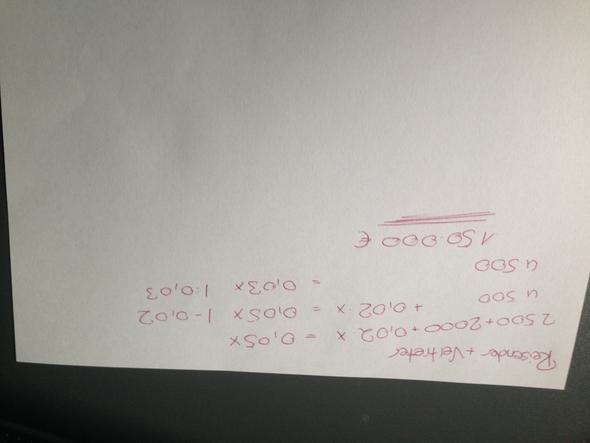 Reisender + Vertreter
2500+2000+0,02·x = 0,05x
4500 + 0,02·x = 0,05x |-0,02
4500 = 0,03x |:0,03
150.000 €